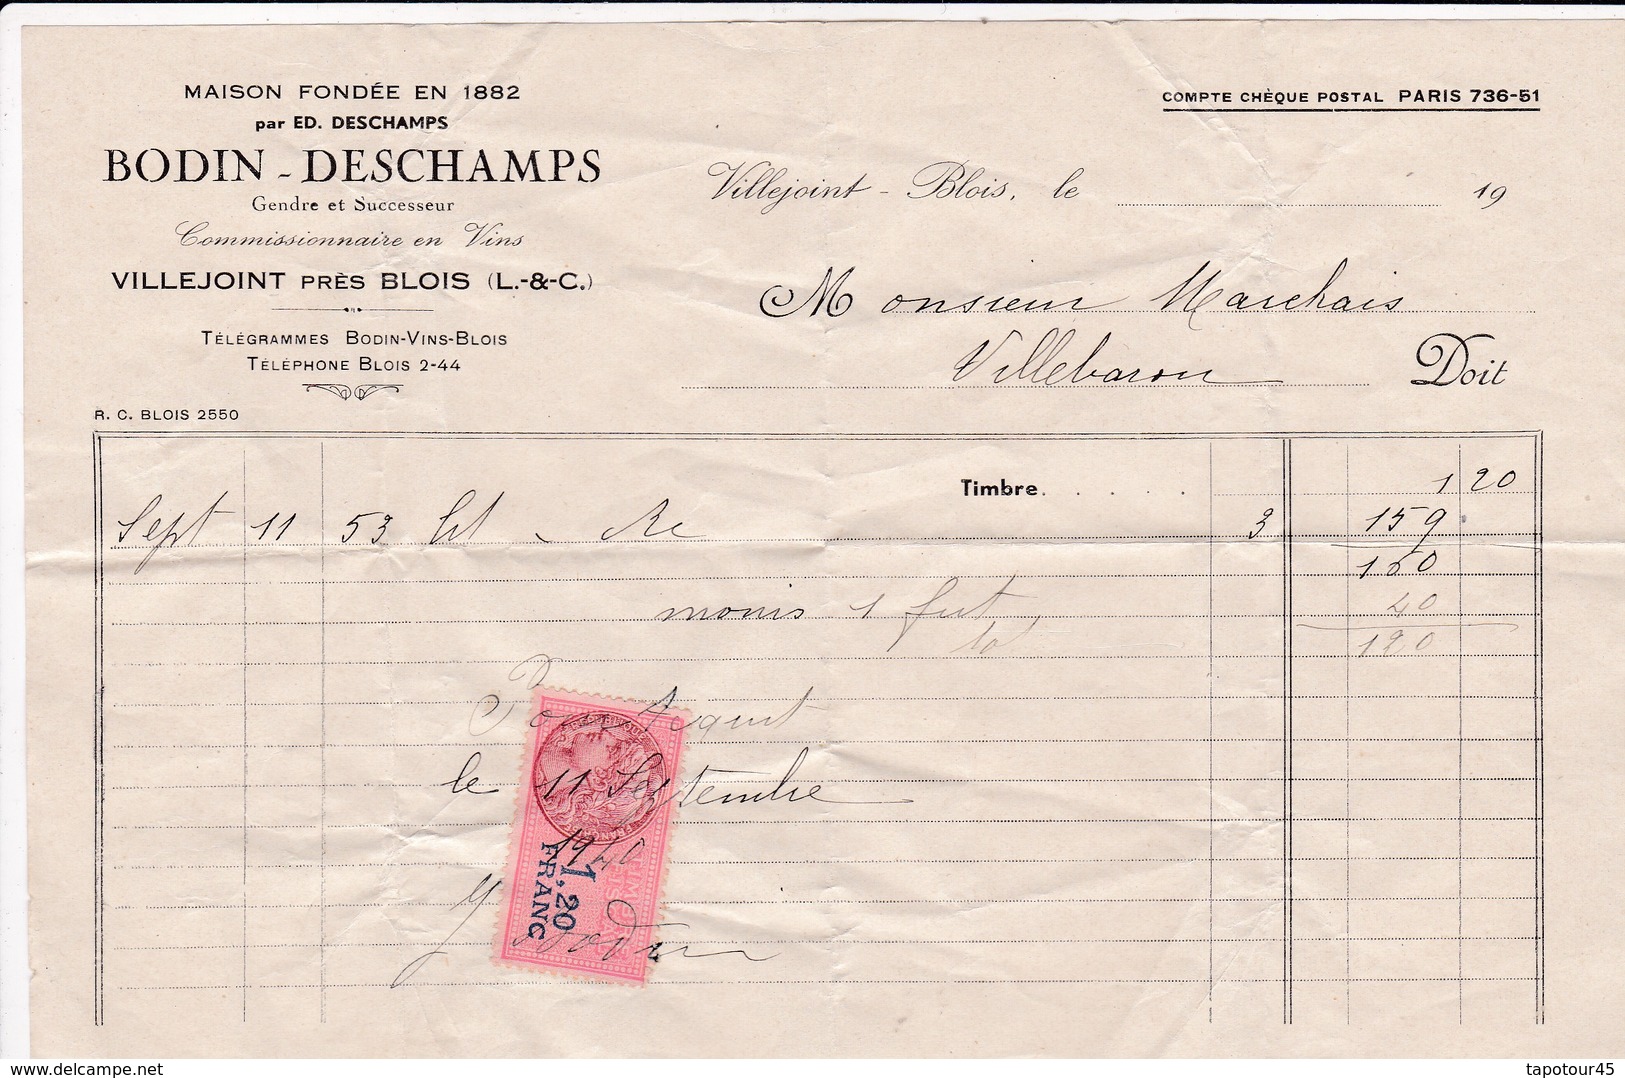 MAISON FONDÉE EN 1882
par ED. DESCHAMPS
BODIN - DESCHAMPS
Gendre et Successeur
Commissionnaire en Vins
VILLEJOINT PRÈS BLOIS (L.-&-C.)
TÉLÉGRAMMES BODIN-VINS-BLOIS
TÉLÉPHONE BLOIS 2-44
R. C. BLOIS 2550
COMPTE CHÈQUE POSTAL PARIS 736-51
Villejoint - Blois, le 19
Monsieur Marchais
Villebarou Doit
Timbre 1 20
Sept 11 53 3 159
160
moins 1 fut 40
120
Pour Acquit
le 11 Septembre
1940
1,20
FRANC
Bodin
tapotour45